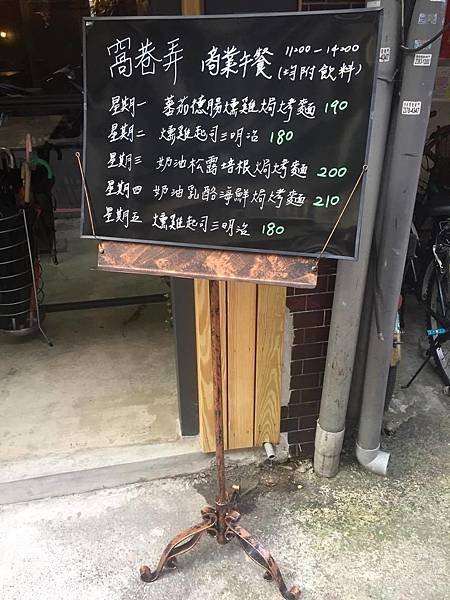 窩巷弄 商業午餐 11:00-14:00
(均附飲料)
星期一 蕃茄德腸燻雞焗烤麵 190
星期二 燻雞起司三明治 180
星期三 奶油松露培根焗烤麵 200
星期四 奶油乳酪海鮮焗烤麵 210
星期五 燻雞起司三明治 180